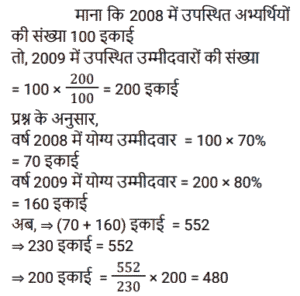 माना कि 2008 में उपस्थित अभ्यर्थियों
की संख्या 100 इकाई
तो, 2009 में उपस्थित उम्मीदवारों की संख्या
= 100 × 200/100 = 200 इकाई
प्रश्न के अनुसार,
वर्ष 2008 में योग्य उम्मीदवार = 100 × 70%
= 70 इकाई
वर्ष 2009 में योग्य उम्मीदवार = 200 × 80%
= 160 इकाई
अब, ⇒ (70 + 160) इकाई = 552
⇒ 230 इकाई = 552
⇒ 200 इकाई = 552/230 × 200 = 480